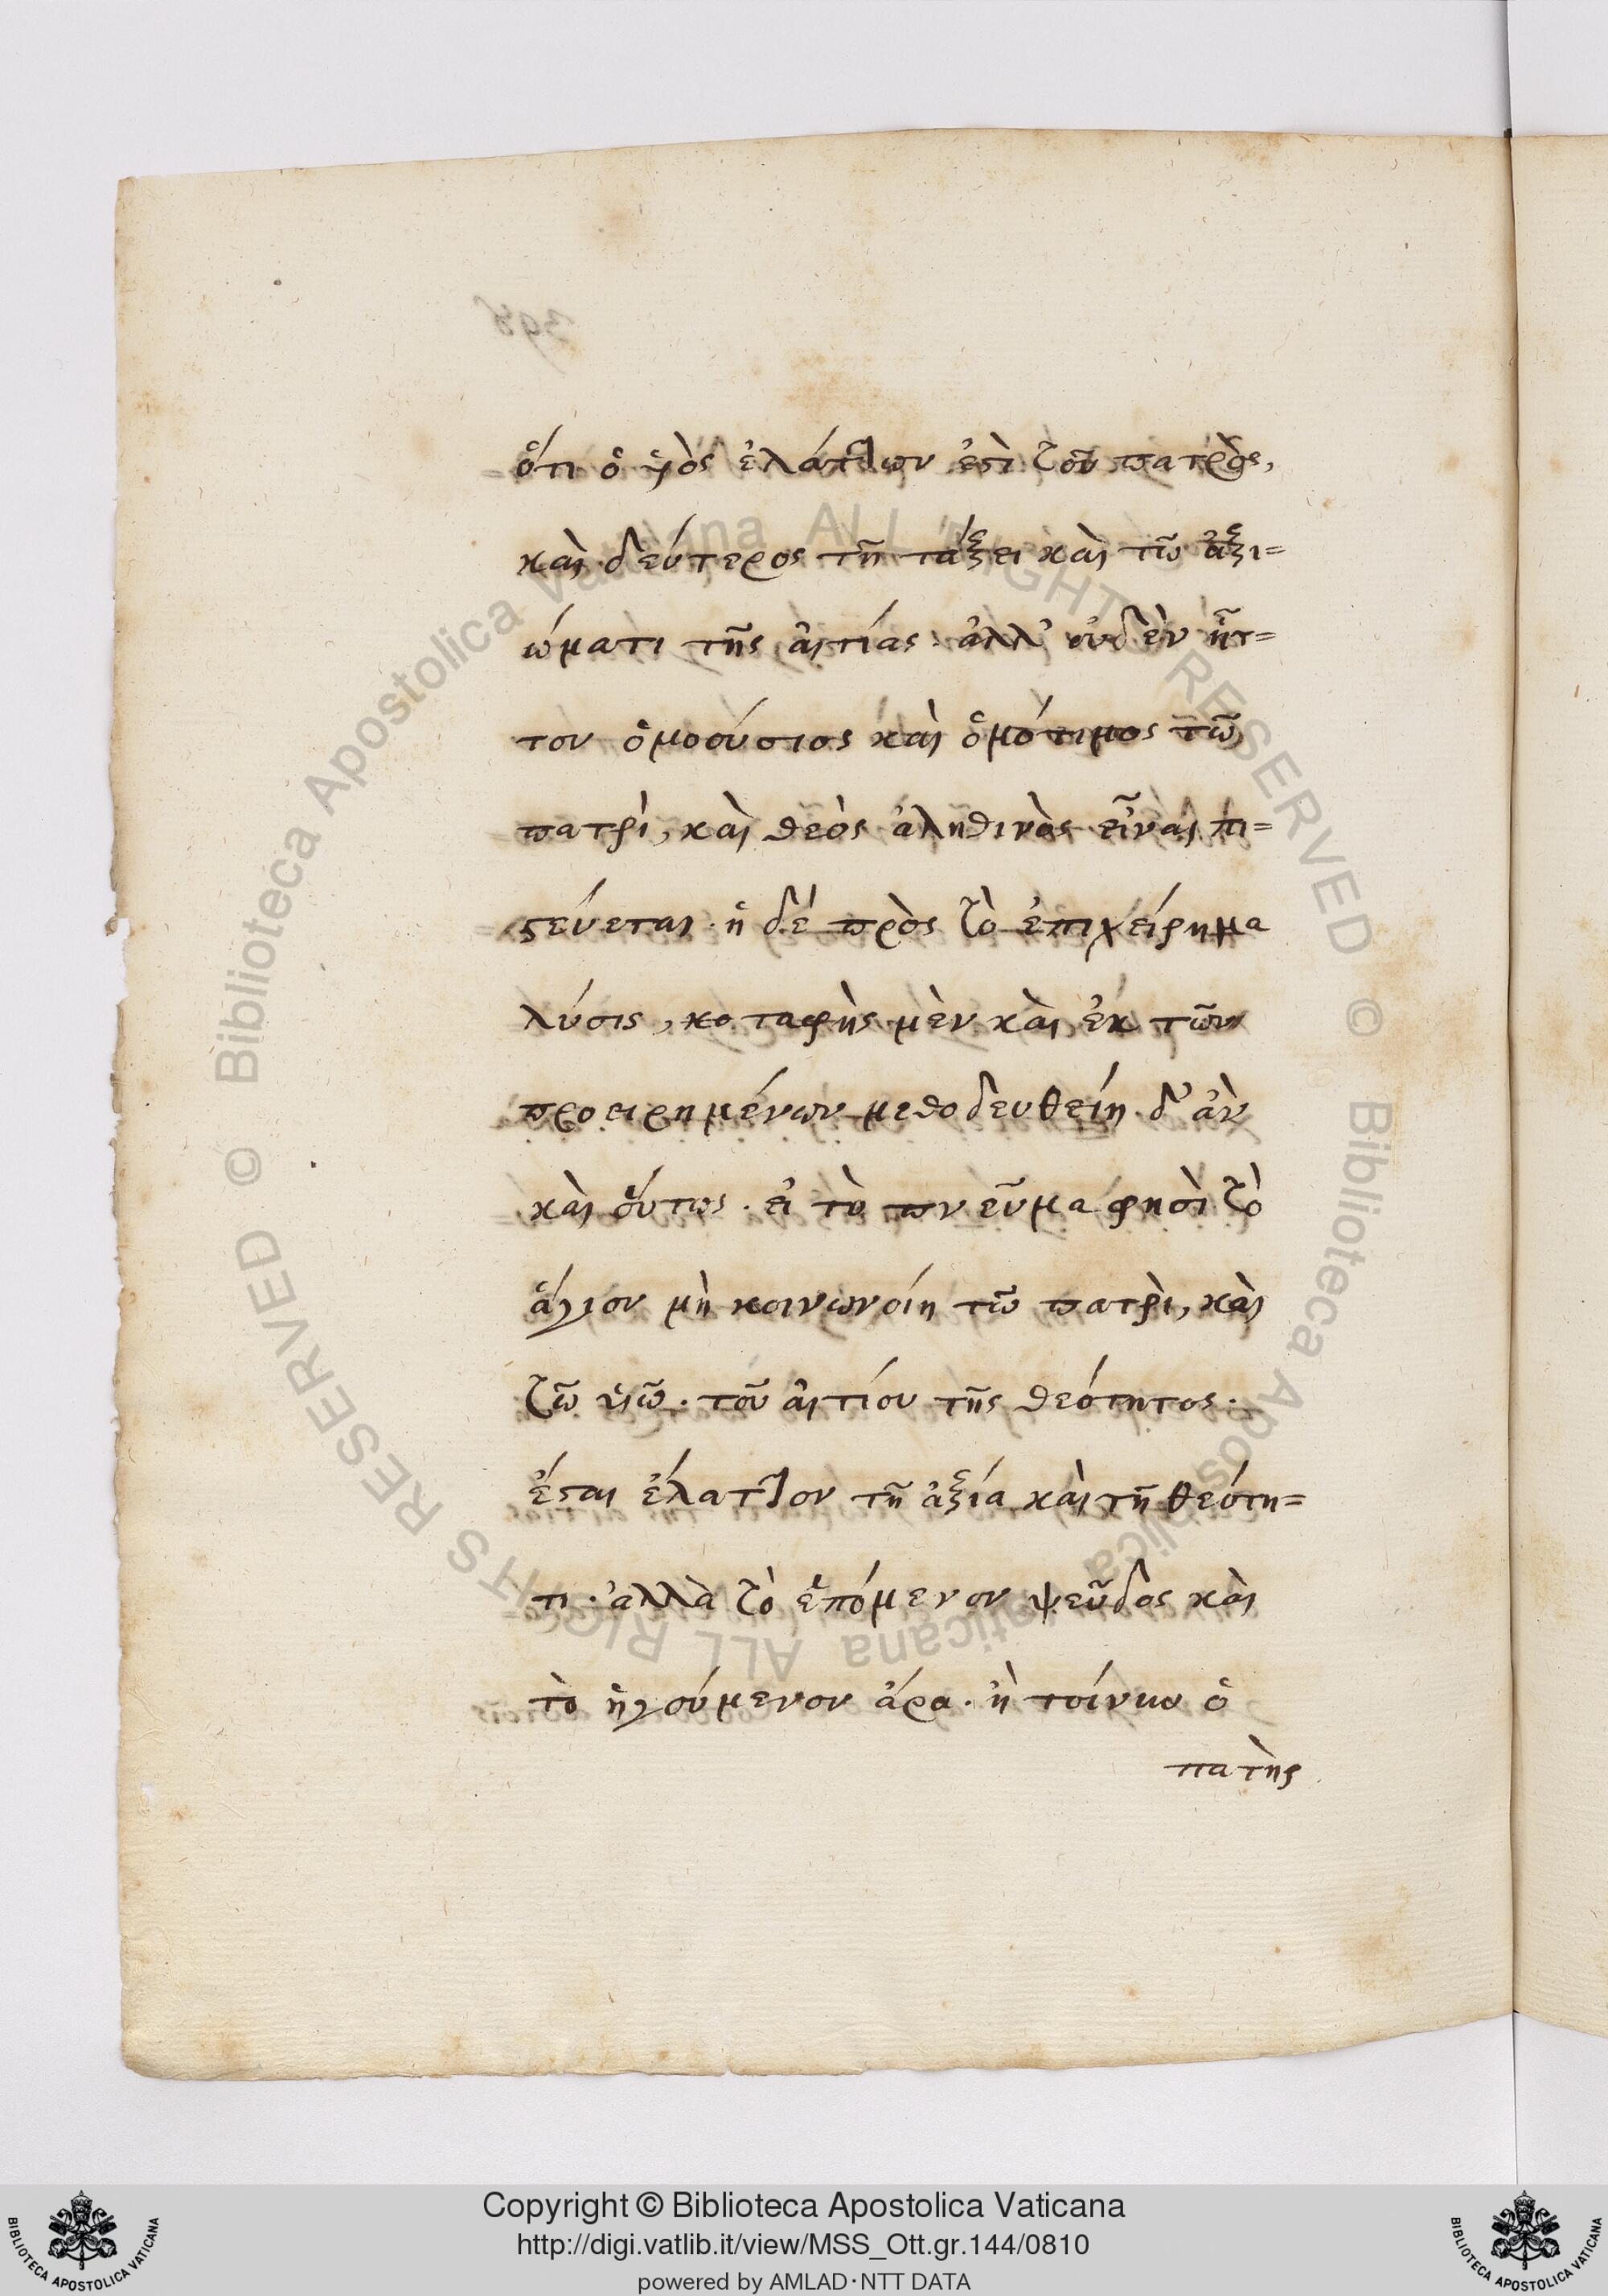 ὅτι ὁ ὑιὸς ἐλάττων ἐστὶ τοῦ πατρὸς,
καὶ δεύτερος τῆ τάξει καὶ τῶ ἀξι=
ώματι τῆς αἰτίας· ἀλλ' οὐδὲν ἧτ=
τον ὁμοούσιος καὶ ὁμότιμος τῶ
πατρὶ, καὶ θεὸς ἀληθινὸς εἶναι πι=
στεύεται· ἡ δέ πρὸς τὸ ἐπιχείρημα
λύσις, καταφὴς μὲν καὶ ἐκ τῶν
προειρημένων μεθοδευθείη δ' ἀν
καὶ οὕτως· εἰ τὸ πνεῦμα φησὶ τὸ
ἅγιον μὴ κοινωνοίη τῶ πατρὶ, καὶ
τῶ ὑιῶ· τοῦ αἰτίου τῆς θεότητος·
ἔσται ἔλαττον τῆ ἀξία καὶ τῆ θεότη=
τι· ἀλλὰ τὸ ἑπόμενον ψεῦδος καὶ
τὸ ἡγούμενον ἄρα· ἢ τοίνυν ὁ
πατὴρ
398
Copyright © Biblioteca Apostolica Vaticana
http://digi.vatlib.it/view/MSS_Ott.gr.144/0810
powered by AMLAD·NTT DATA
BIBLIOTECA APOSTOLICA VATICANA
BIBLIOTECA APOSTOLICA VATICANA
© Biblioteca Apostolica Vaticana ALL RIGHTS RESERVED
© Biblioteca Apostolica Vaticana ALL RIGHTS RESERVED